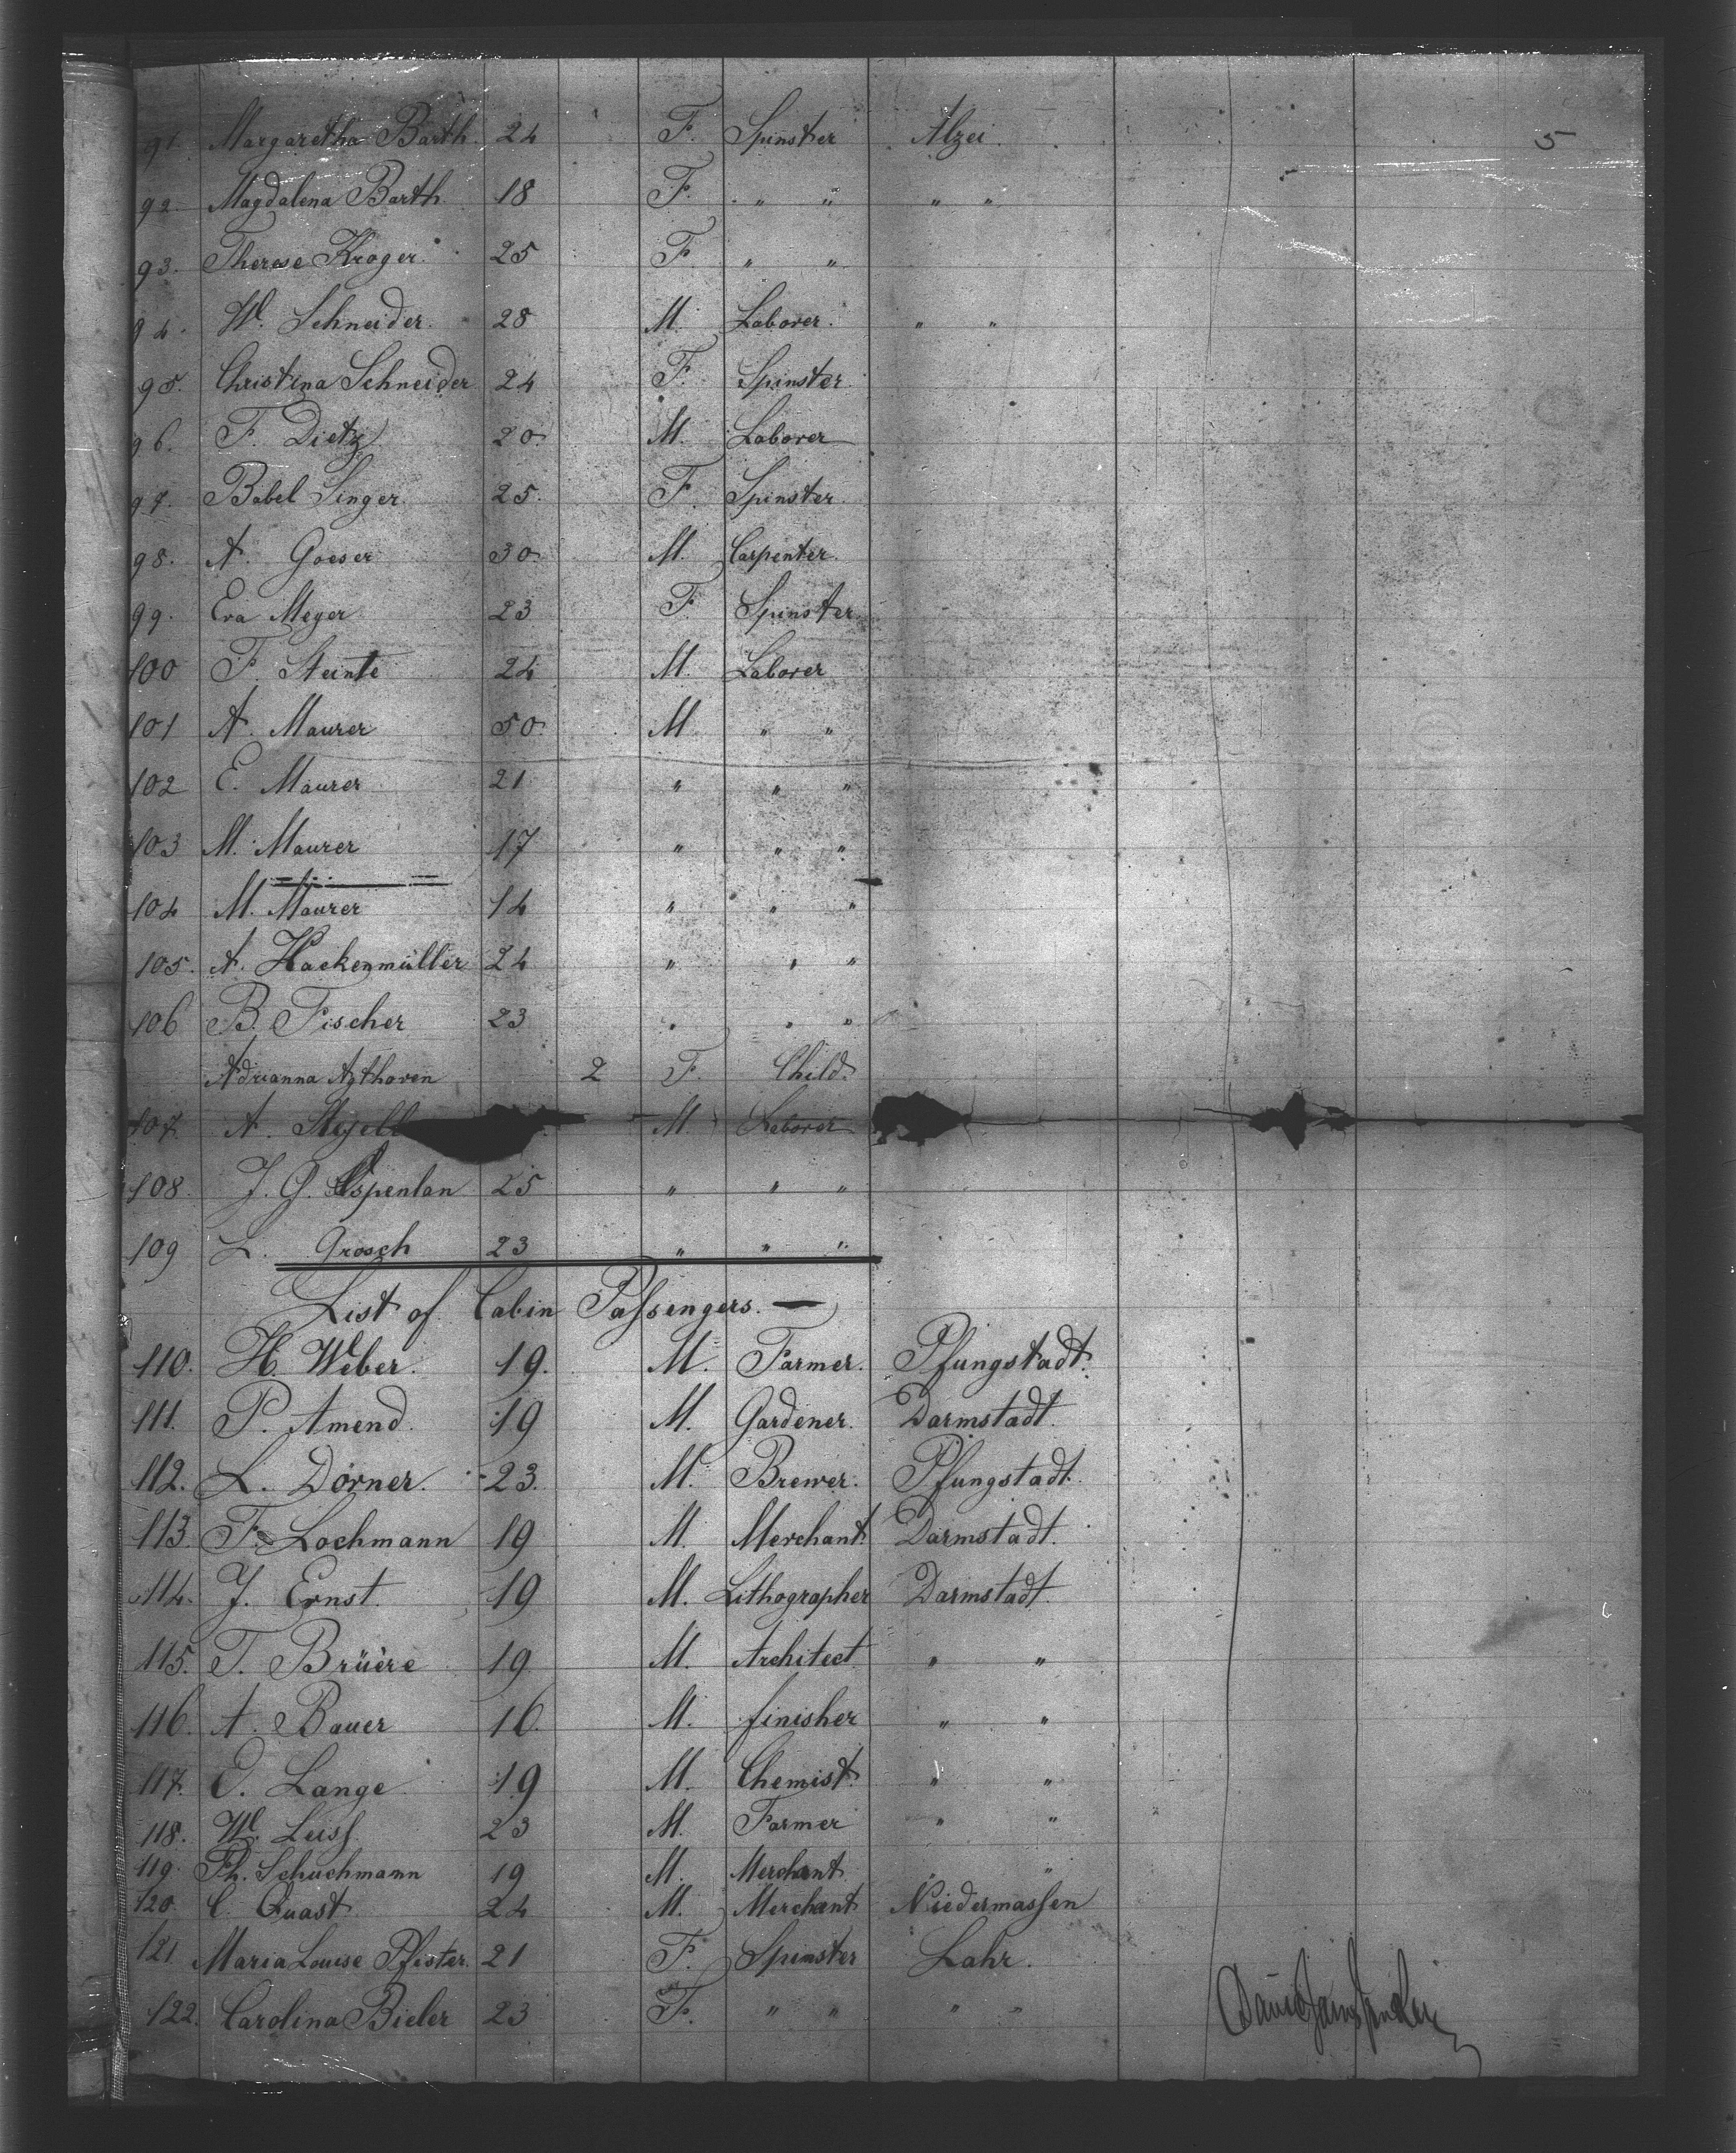 5
91. Margaretha Barth. 24 F. Spinster Alzei.
92. Magdalena Barth. 18 F. " " " "
93. Therese Kroger. 25 F. " "
94. W. Schneider. 28 M. Laborer. " "
95. Christina Schneider 24 F. Spinster.
96. F. Dietz 20. M. Laborer
97. Babel Singer. 25. F. Spinster.
98. A. Goeser 30. M. Carpenter.
99. Eva Meyer 23 F. Spinster.
100 F. Steinte 24 M. Laborer
101 A. Maurer 50. M " "
102 E. Maurer 21 " " "
103 M. Maurer 17 " " "
104 M. Maurer 14 " " "
105. A. Hackenmüller 24 " " "
106 B. Fischer 23 " " "
Adrianna Agthoven 2 F. Child.
107. A. M. Laborer
108. J. G. Espenlan 25 " " "
109 L. Grosch 23 " " "
List of Cabin Passengers. —
110. H. Weber. 19. M. Farmer. Pfungstadt.
111. P. Amend. 19 M. Gardener. Darmstadt.
112. L. Dörner. 23. M. Brewer. Pfungstadt.
113. F. Lochmann 19 M. Merchant. Darmstadt.
114. J. Ernst. 19 M. Lithographer Darmstadt.
115. T. Brüère 19 M. Architect " "
116. A. Bauer 16. M. finisher " "
117. O. Lange 19 M. Chemist. " "
118. W. Leiss. 23 M. Farmer " "
119. Ph. Schuchmann 19 M. Merchant " "
120. C. Quast. 24 M. Merchant Niedermassen
121 Maria Louise Pfister. 21 F. Spinster Lahr.
122. Carolina Bieler 23 F. " " " "